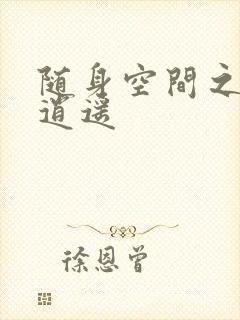 随身空間之
逍遥
徐恩曾